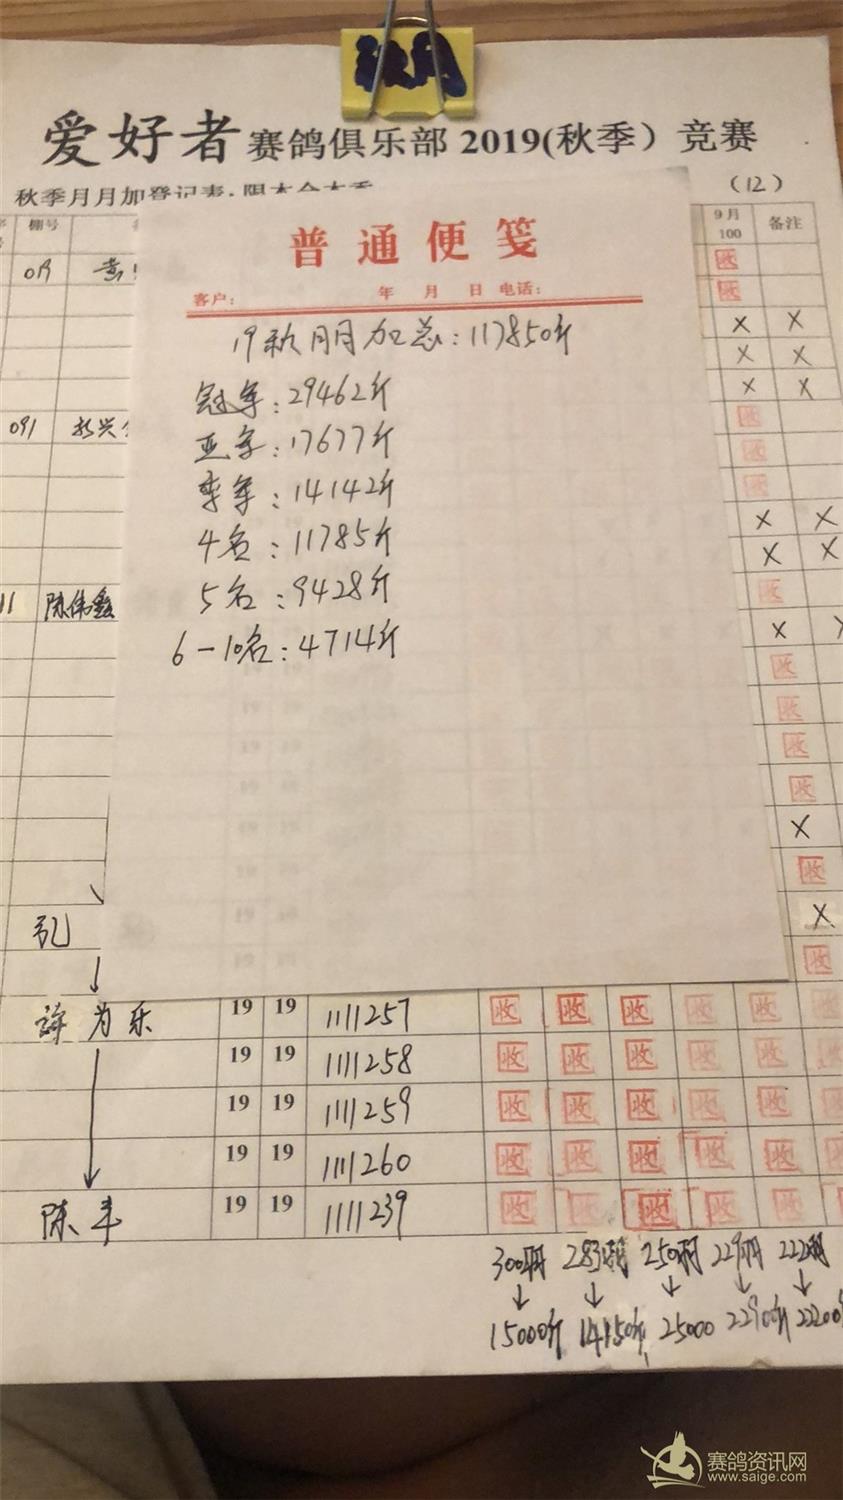 秋月
爱好者赛鸽俱乐部2019(秋季)竞赛
秋季月月加登记表:限本会本季
(12)
棚号
9月
100
备注
普通便笺
客户: 年 月 日 电话:
19秋月月加总:117850斤
冠军:29462斤
亚军:17677斤
季军:14142斤
4名:11785斤
5名:9428斤
6-10名:4714斤
收
收
X X
X X
X X
091
收
收
收
X X
X X
11 陈伟
收
X
收
收
收
收
X
收
孔
X
收
许为乐 19 19 1111257 收 收 收 收 收
19 19 1111258 收 收 收 收 收
19 19 1111259 收 收 收 收 收
19 19 1111260 收 收 收 收 收
陈丰 19 19 1111239 收 收 收 收 收
300羽 283羽 250羽 229羽 222羽
↓ ↓ ↓ ↓ ↓
15000斤 14150斤 25000 22900斤 22200
赛鸽资讯网
www.saige.com